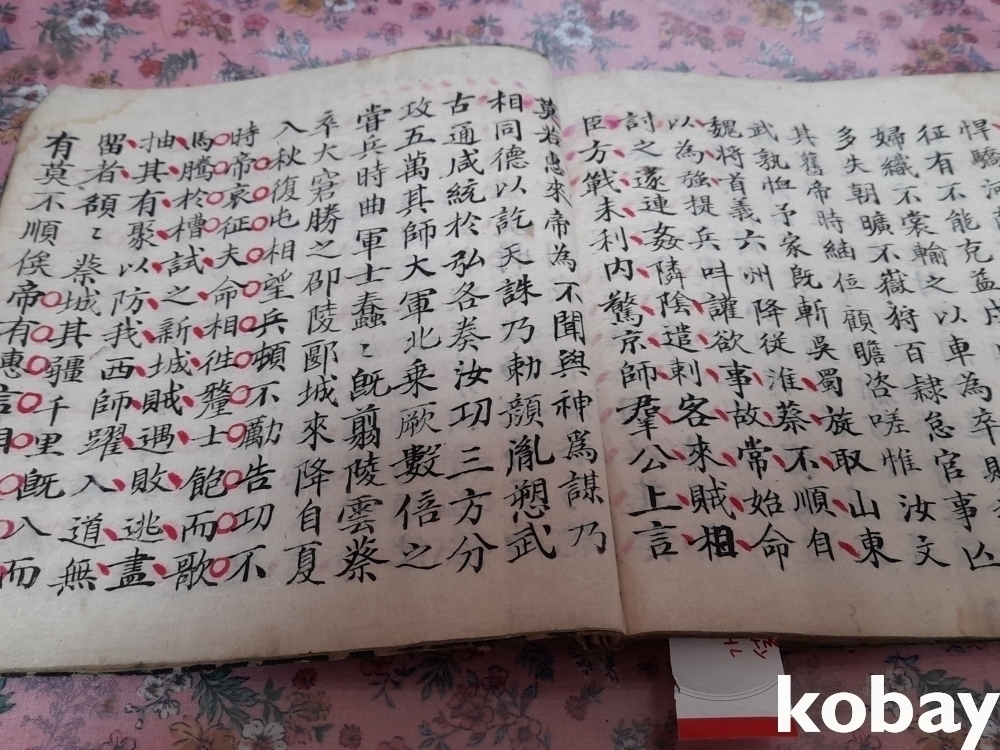 悍驕河
征有不能克益戍
婦織不裳輸之以車為卒賜
多失朝曠不嶽狩百隷怠官事亾
其舊帝時紬位顧瞻咨嗟惟汝文
武孰恤予家既斬吳蜀旋取山東
魏將首義六州降從淮蔡不順自
以為強提兵叫讙欲事故常始命
討之遂連姦隣陰遣刺客來賊相
臣方戰未利内驚京師羣公上言
莫若惠來帝為不聞與神爲謀乃
相同德以訖天誅乃勅顔胤愬武
古通咸統於弘各奏汝功三方分
攻五萬其師大軍北乗厥數倍之
嘗兵時曲軍士蠢〻既翦陵雲蔡
卒大窘勝之邵陵郾城來降自夏
入秋復屯相望兵頓不勵告功不
時帝哀征夫命相徃釐士飽而歌
馬騰於槽試之新城賊遇敗逃盡
抽其有聚以防我西師躍入道無
畱者額〻蔡城其疆千里既入而
有莫不順俟帝有惠言相
kobay